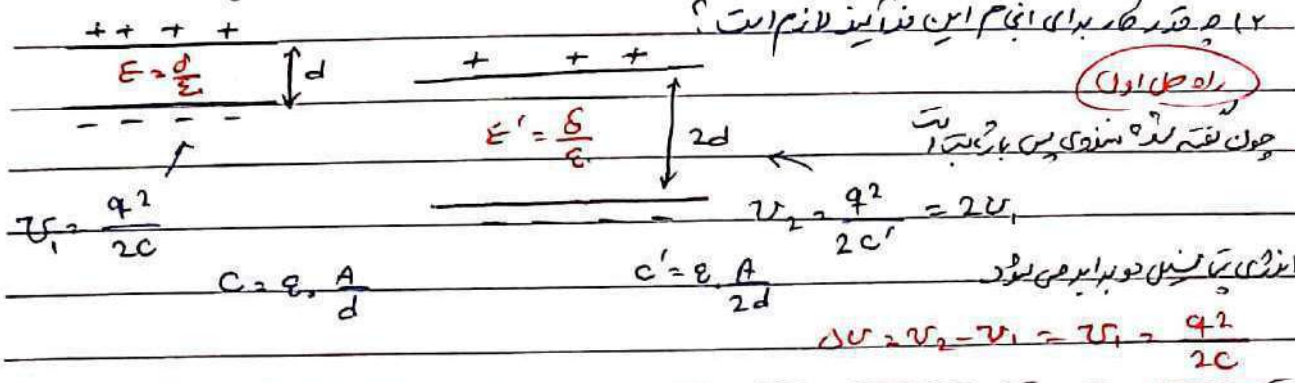 ۲) چه قدر کار برای انجام این فرآیند لازم است؟
+ + + +
E = σ/ε₀
d
- - - -
+ + +
E' = σ/ε₀
2d
- - - -
راه حل اول
چون گفته شده منزوی پس بار ثابت است
U₁ = q²/2C
U₂ = q²/2C' = 2U₁
C = ε₀ A/d
C' = ε₀ A/2d
انرژی پتانسیل دو برابر می شود
ΔU = U₂ - U₁ = U₁ = q²/2C